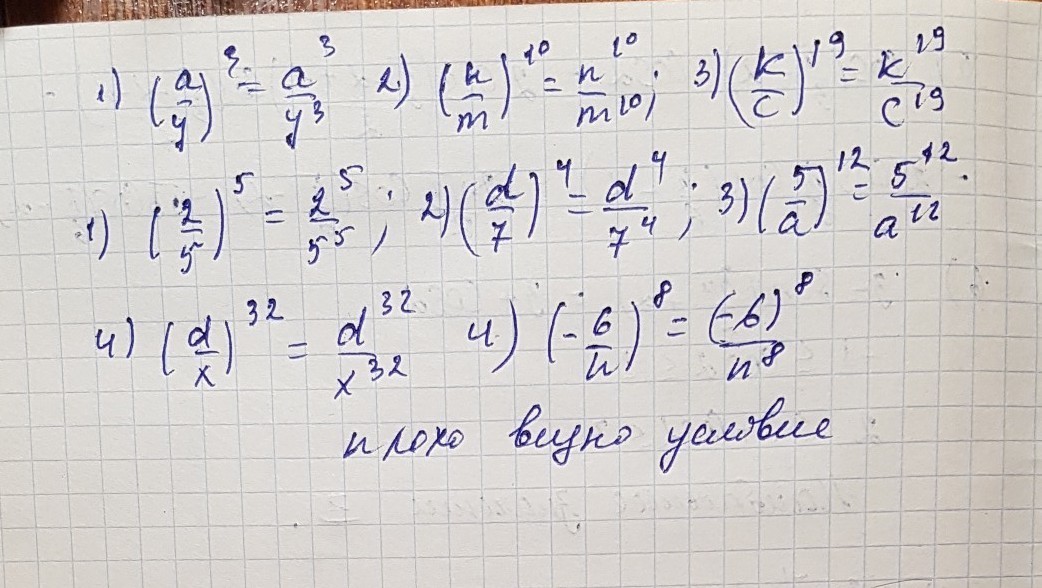 1) (a/y)³ = a³/y³ 2) (n/m)¹⁰ = n¹⁰/m¹⁰; 3) (k/c)¹⁹ = k¹⁹/c¹⁹
1) (2/5)⁵ = 2⁵/5⁵; 2) (d/7)⁴ = d⁴/7⁴; 3) (5/a)¹² = 5¹²/a¹².
4) (d/x)³² = d³²/x³² 4) (-6/n)⁸ = (-6)⁸/n⁸
плохо видно условие